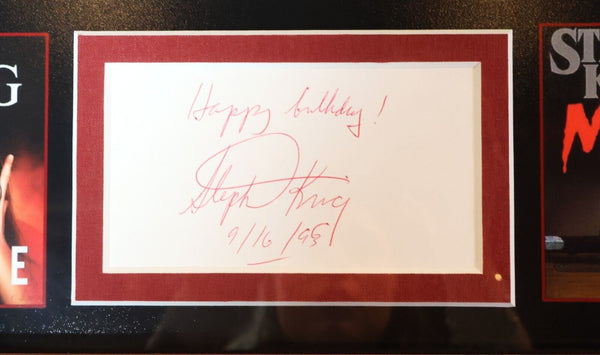 G
E
Happy birthday!
Stephen King
9/16/93
ST
K
M